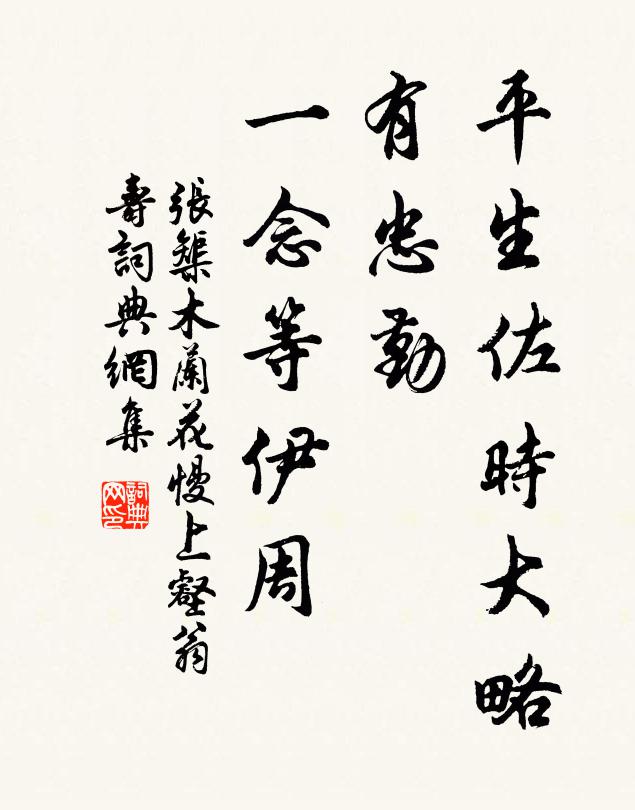 平生佐時大略
有忠勤
一念等伊周
張榘木蘭花慢上壑翁
壽詞典網集
詞典網印